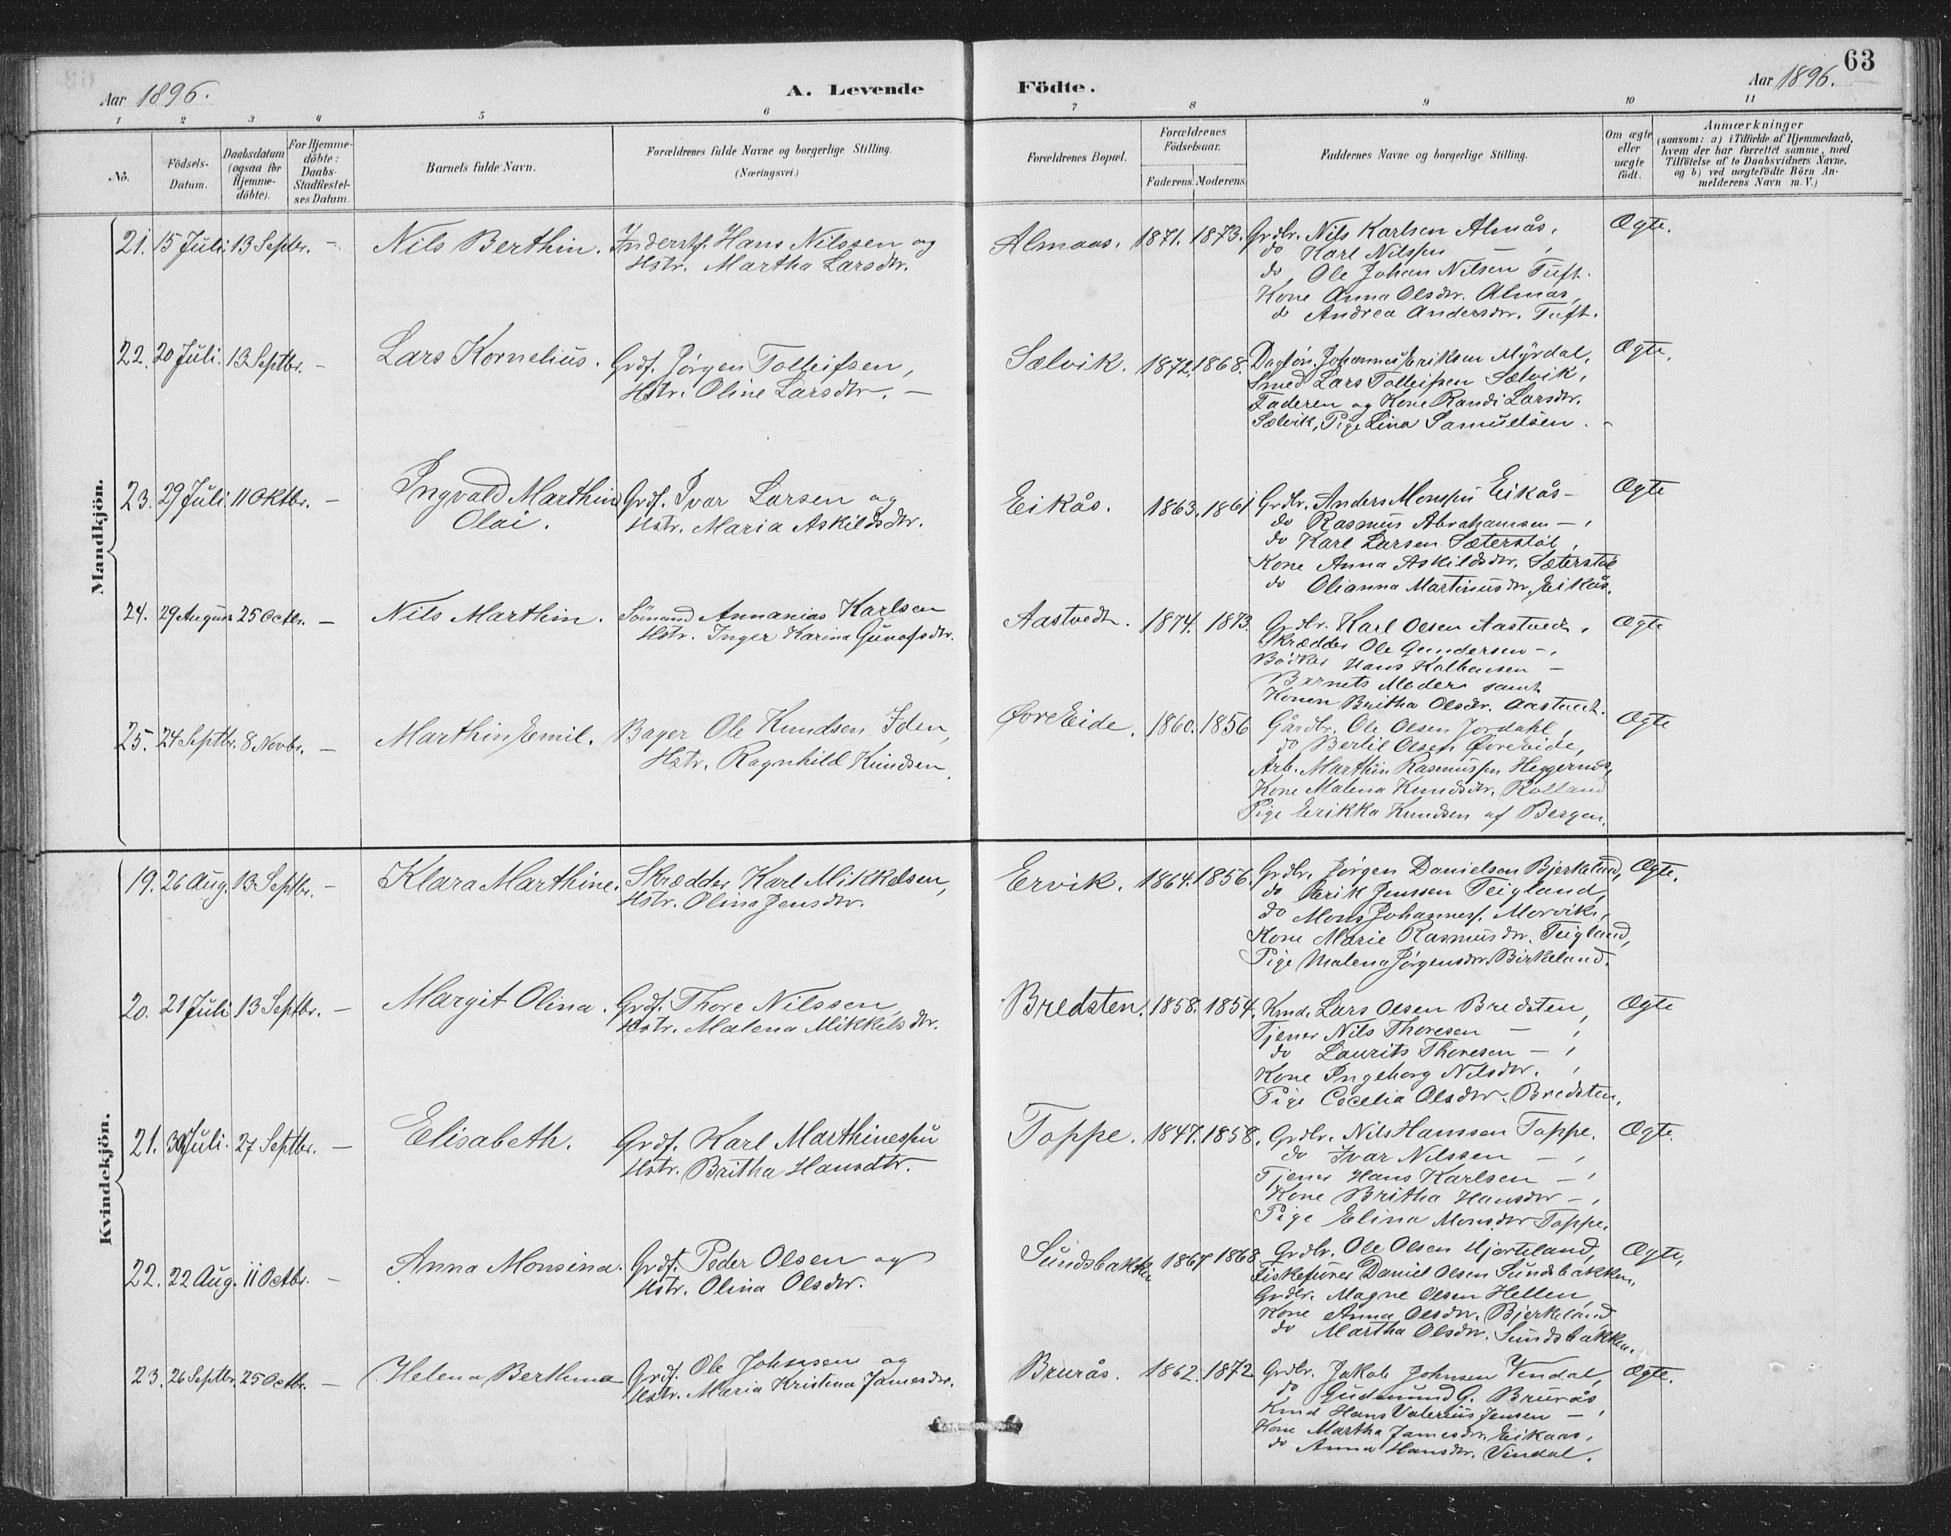 63
Aar 1896.
A. Levende Födte.
Aar 1896.
1 2 3 4 5 6 7 8 9 10 11
No.
Födsels-Datum.
Daabsdatum (ogsaa for Hjemme-döbte).
For Hjemme-döbte: Daabs-Stadfæstel-ses Datum.
Barnets fulde Navn.
Forældrenes fulde Navne og borgerlige Stilling.
(Næringsvei.)
Forældrenes Bopæl.
Forældrenes Födselsaar.
Faderens. Moderens.
Faddernes Navne og borgerlige Stilling.
Om ægte eller uægte født.
Anmærkninger
(saasom: a) i Tilfælde af Hjemmedaab,
hvem der har forrettet samme, med
Tilföielse af to Daabsvidners Navne,
og b) ved uægtefödte Börn An-
melderens Navn m. V.)
Mandkjön.
21. 15 Juli 13 Septbr. – Nils Berthin. Inderst. Hans Nilssen og
Hstr. Martha Larsdtr.
Almaas. 1871. 1873. Grdbr. Nils Karlsen Almås,
do Karl Nilssen — ,
do Ole Johan Nilsen Tuft.
Kone Anna Olsdtr. Almås,
do Andrea Andersdtr. Tuft.
Ægte.
22. 20 Juli. 13 Septbr. – Lars Kornelius. Grdf. Jørgen Tolleifsen,
Hstr. Oline Larsdtr. –
Sælvik. 1872. 1868. Dagløn. Johannes Eriksen Myrdal,
Smed Lars Tolleifsen Sælvik,
Faderen og Kone Randi Larsdtr.
Sælvik, Pige Lina Samuelsen.
Ægte.
23. 29 Juli 11 Oktbr. – Ingvald Marthin
Olai.
Grdf. Ivar Larsen og
Hstr. Maria Askildsdtr.
Eikås. 1863. 1861 Grdbr. Anders Monsen Eikås –
do Rasmus Abrahamsen – ,
do Karl Larsen Sæterstøl,
Kone Anna Askildsdtr. Sæterstøl
do Olianna Martinusdtr. Eikås.
Ægte
24. 29 August 25 Octbr. – Nils Marthin. Sømand Annanias Karlsen
Hstr. Inger Karina
Aastvedt. 1874. 1873. Grdbr. Karl Olsen Aastvedt,
Skrædder Ole Gundersen – ,
Hans –
Barnets Moder samt
Konen Britha Olsdtr. Aastvedt.
Ægte
25. 24 Septbr. 8 Novbr. – Marthin Emil. Bager Ole Knudsen
Hstr. Ragnhild Knudsen.
Øvre Eide. 1860. 1856 Gårdbr. Ole Olsen Jordahl,
do Bertil Olsen Øvre Eide,
Arb. Marthin Rasmussen Heggernes,
Kone Malena Knudsdtr. Rolland
Pige Erikka Knudsen af Bergen.
Ægte
Kvindekjön.
19. 26 Aug. 13 Septbr. – Klara Marthine. Skrædder Karl Mikkelsen,
Hstr. Olina Jensdtr.
Ervik. 1864. 1856. Grdbr. Jørgen Danielsen Bjerkelund,
do Erik Jenssen Teigland,
do Mons Johanness. Morvik,
Kone Marie Rasmusdtr. Teigland,
Pige Malena Jørgensdtr. Birkeland.
Ægte.
20. 21 Juli 13 Septbr. – Margit Olina. Grdf. Thore Nilssen,
Hstr. Malena Mikkelsdtr.
Bredsten. 1858. 1854. Kmd. Lars Olsen Bredsten,
Tjener Nils Thoresen – ,
do Laurits Thoresen – ,
Kone Ingeborg Nilsdtr. ,
Pige Cecelia Olsdtr. Bredsten.
Ægte
21. 30 Juli. 27 Septbr. – Elisabeth. Grdf. Karl Marthinessen
Hstr. Britha Hansdtr.
Toppe. 1847. 1858. Grdbr. Nils Hanssen Toppe.
do Ivar Nilssen – ,
Tjener Hans Karlsen – ,
Kone Britha Hansdtr – ,
Pige Elina Monsdtr Toppe.
Ægte.
22. 22 Aug. 11 Octbr. – Anna Monsina. Grdf. Peder Olsen og
Hstr. Olina Olsdtr.
Sundsbakken 1867 1868. Grdbr. Ole Olsen Hjorteland,
Daniel Olsen Sundsbakken,
Grdbr. Magne Olsen Hellen,
Kone Anna Olsdtr. Bjerkeland
do Martha Olsdtr. Sundsbakken.
Ægte,
23. 26 Septbr. 25 Octbr. – Helena Berthina Grdf. Ole Johnsen og
Hstr. Maria Kristina Jamesdtr.
Brurås. 1862. 1872 Grdbr. Jakob Johnsen Vindal,
do Gudmund G. Brurås
Kmd Hans Valerius Jensen – ,
Kone Martha Jamesdtr. Eikaas,
do Anna Hansdtr. Vindal.
Ægte.